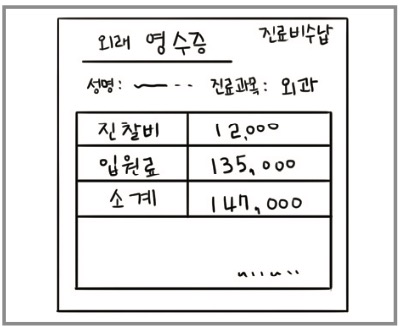 외래 영수증 진료비수납
성명: 진료과목: 외과
진찰비 12,000
입원료 135,000
소계 147,000